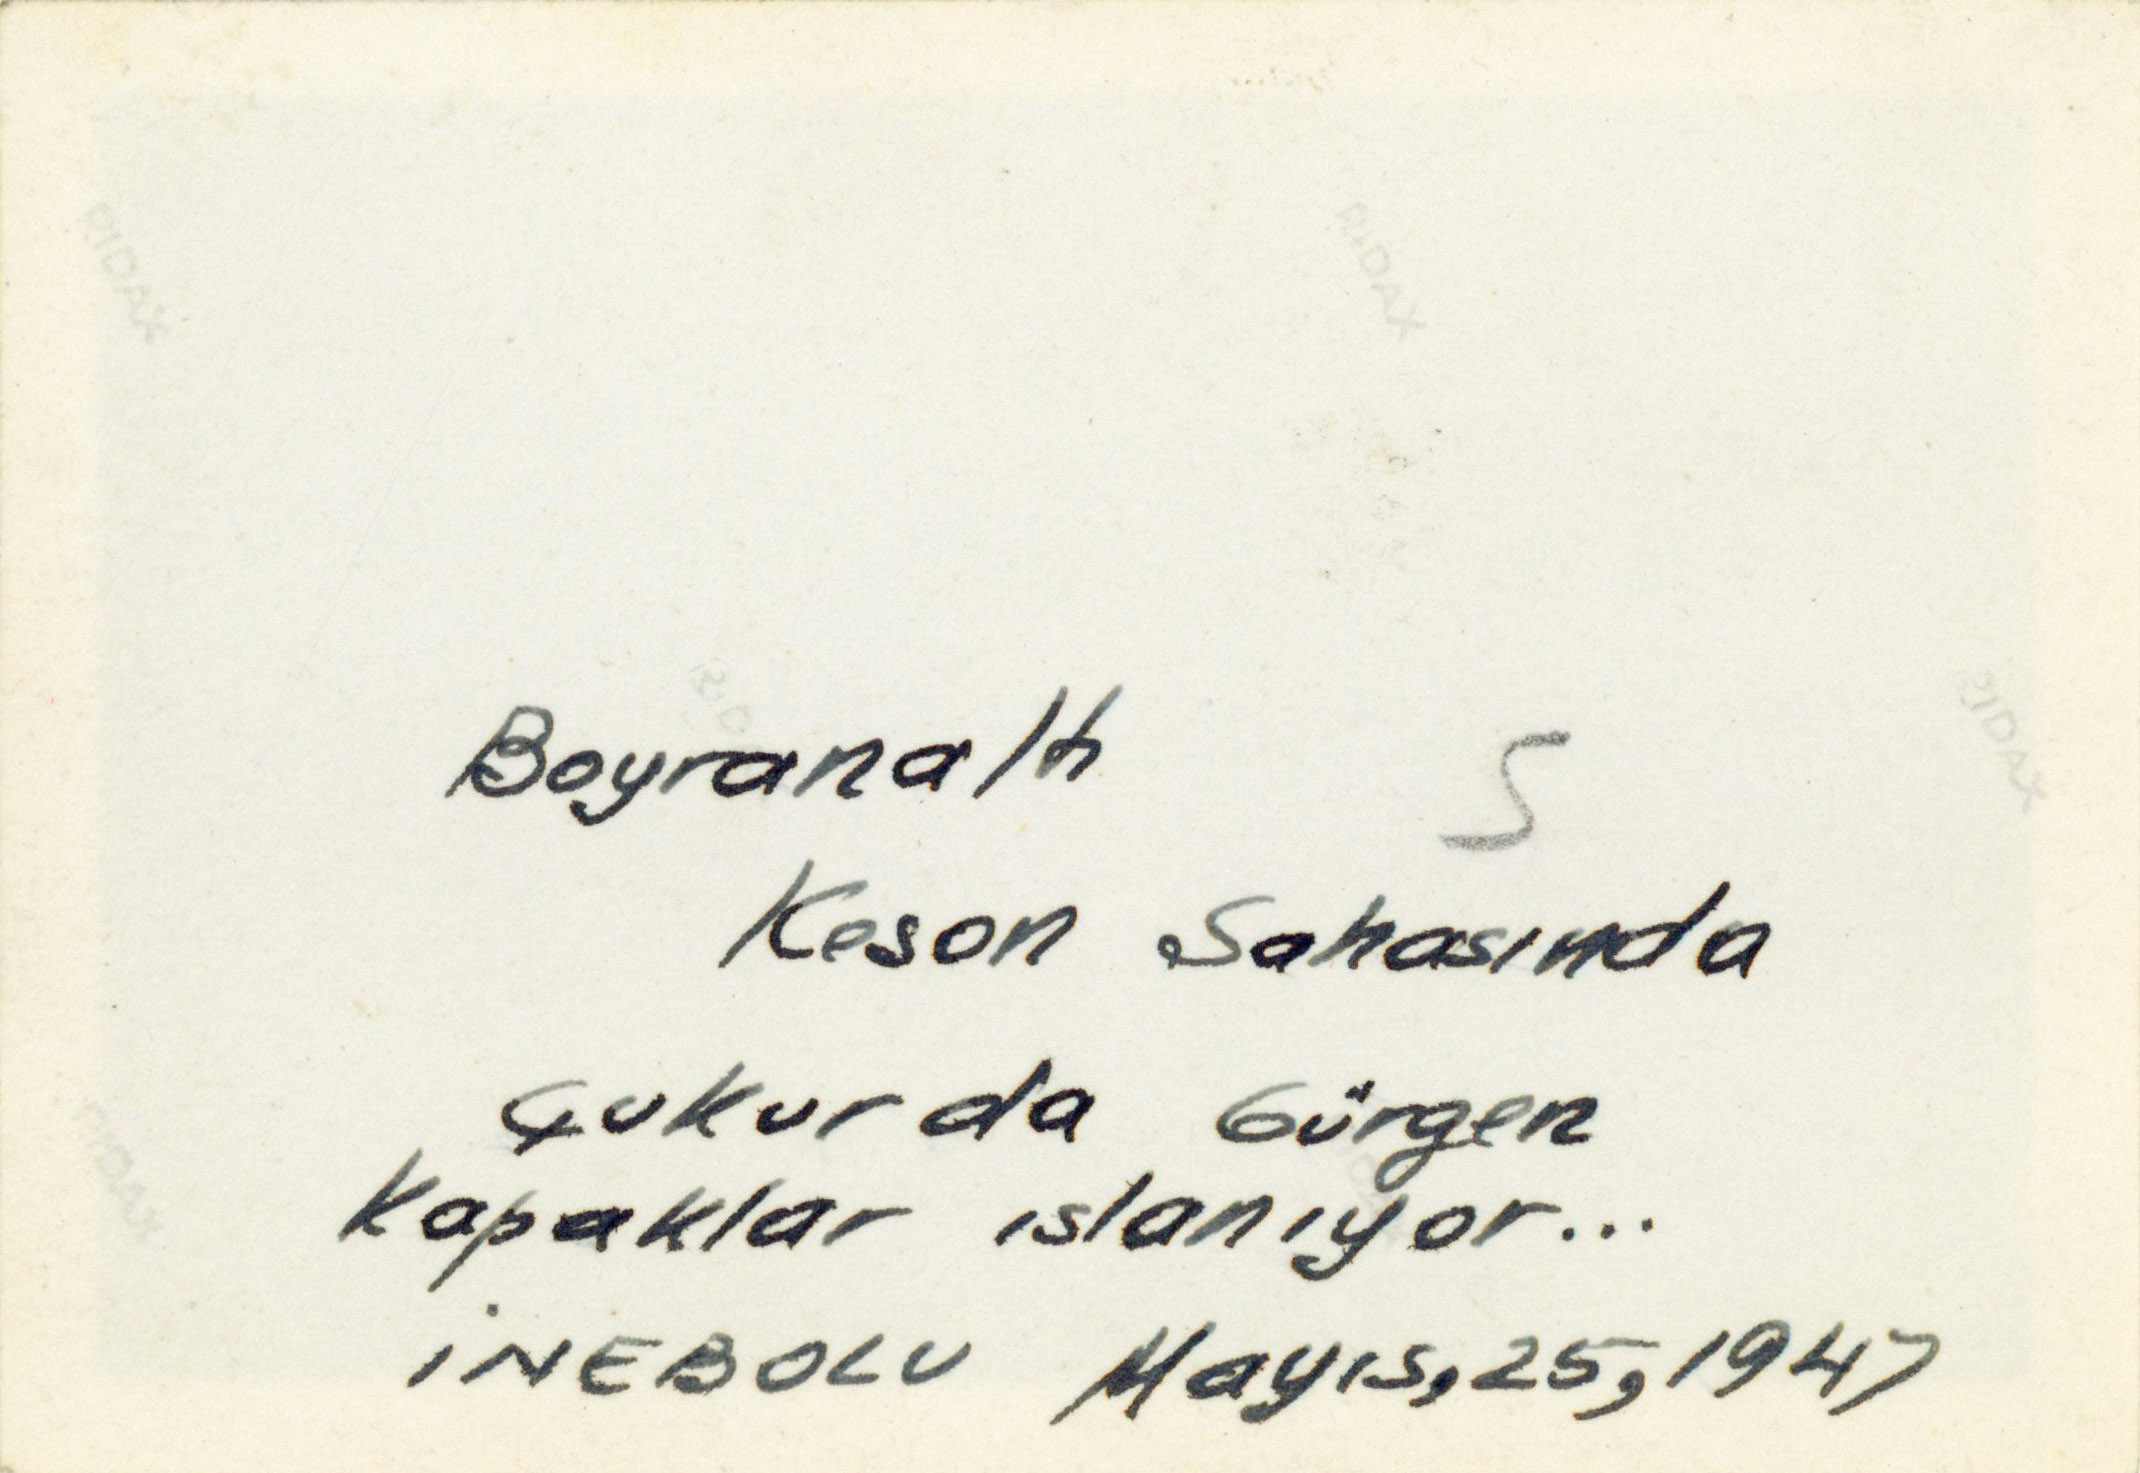 RIDAX RIDAX
Boyranaltı RIDAX
5
Keson Sahasında
Çukurda Gürgen
RIDAX
Kapaklar ıslanıyor...
İNEBOLU Mayıs,25,1947